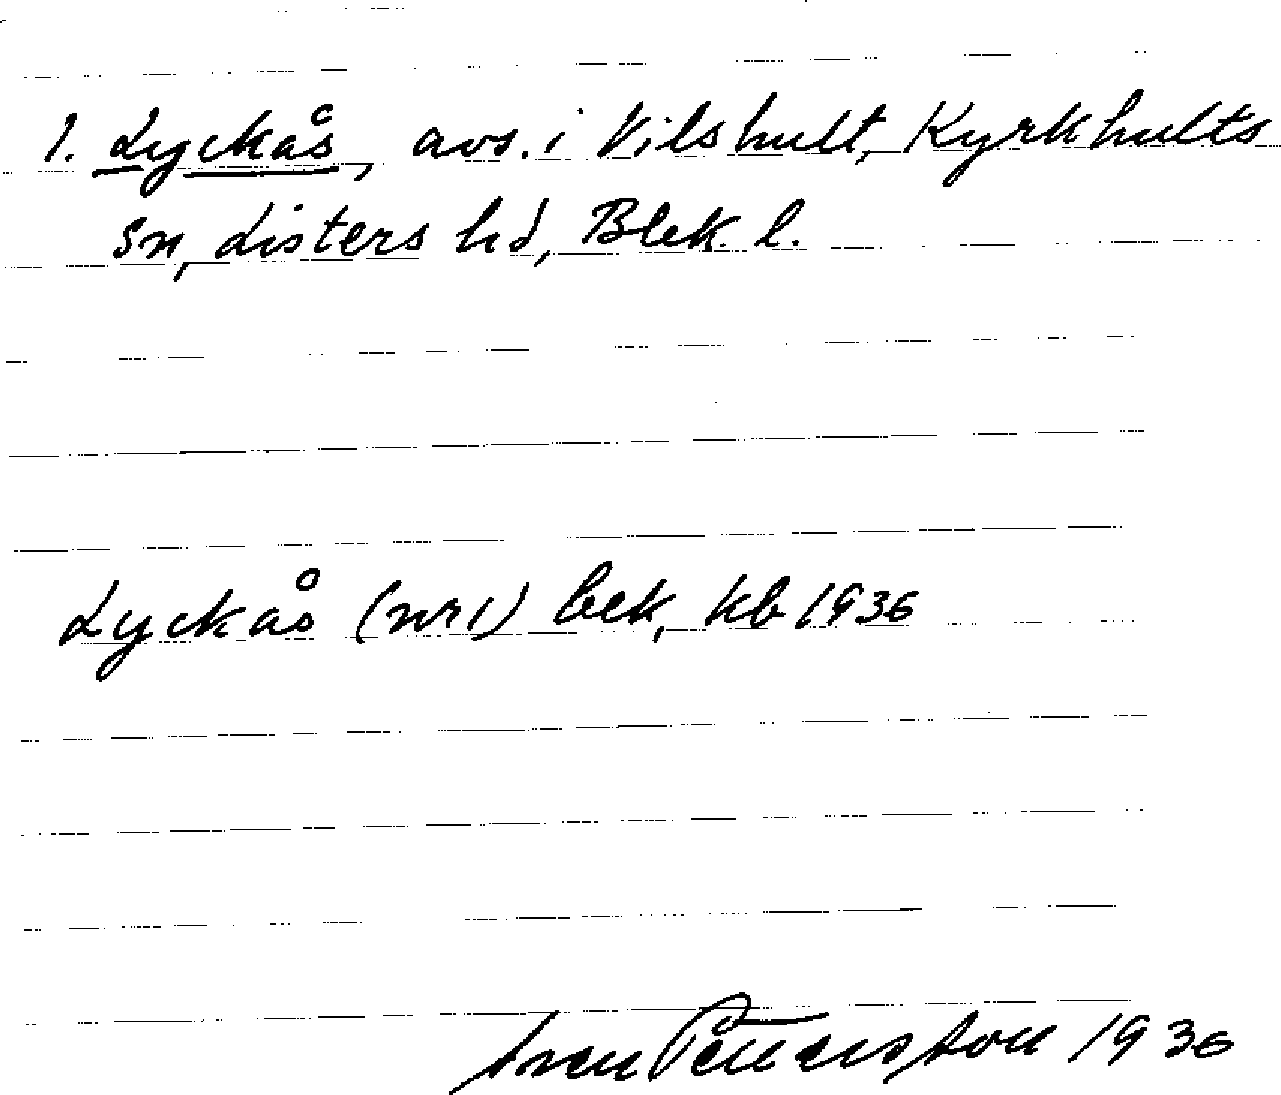 1. Lyckås, avs. i Vilshult, Kyrkhults
sn, Listers hd, Blek. l.
Lyckås (nr 1) bek, kb 1936
Sven Petersson 1936